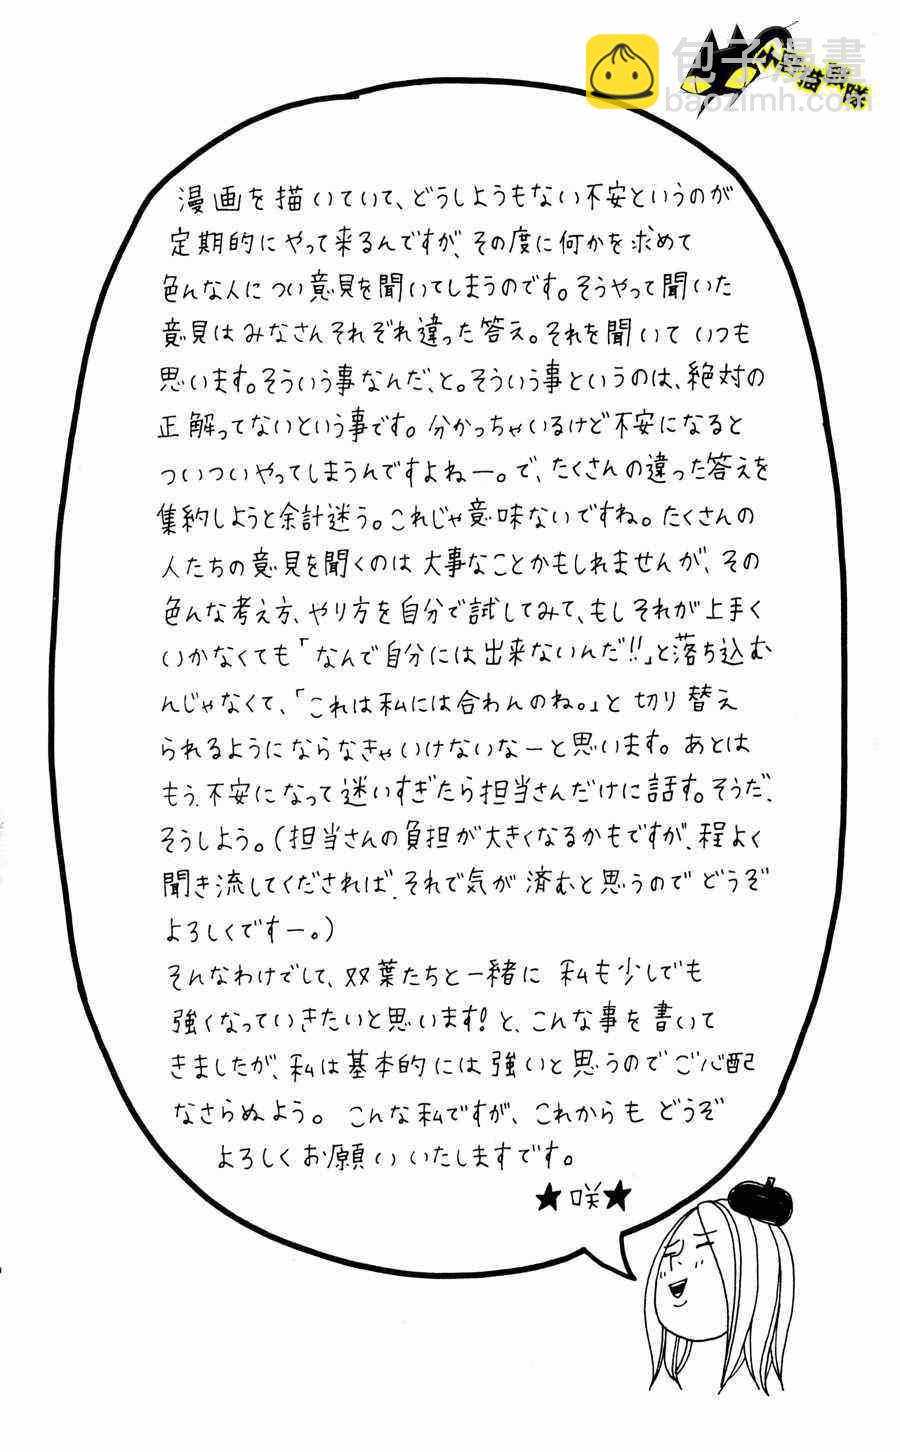 包子漫畫
baozimh.com
漫画を描いていて、どうしようもない不安というのが
定期的にやって来るんですが、その度に何かを求めて
色んな人につい意見を聞いてしまうのです。そうやって聞いた
意見はみなさんそれぞれ違った答え。それを聞いていつも
思います。そういう事なんだ、と。そういう事というのは、絶対の
正解ってないという事です。分かっちゃいるけど不安になると
ついついやってしまうんですよねー。で、たくさんの違った答えを
集約しようと余計迷う。これじゃ意味ないですね。たくさんの
人たちの意見を聞くのは大事なことかもしれませんが、その
色んな考え方、やり方を自分で試してみて、もしそれが上手く
いかなくても「なんで自分には出来ないんだ!!」と落ち込む
んじゃなくて、「これは私には合わんのね。」と切り替え
られるようにならなきゃいけないなーと思います。あとは
もう、不安になって迷いすぎたら担当さんだけに話す。そうだ、
そうしよう。(担当さんの負担が大きくなるかもですが、程よく
聞き流してくだされば、それで気が済むと思うのでどうぞ
よろしくですー。)
そんなわけでして、双葉たちと一緒に私も少しでも
強くなっていきたいと思います!と、こんな事を書いて
きましたが、私は基本的には強いと思うのでご心配
なさらぬよう。こんな私ですが、これからもどうぞ
よろしくお願いいたしますです。
★咲★